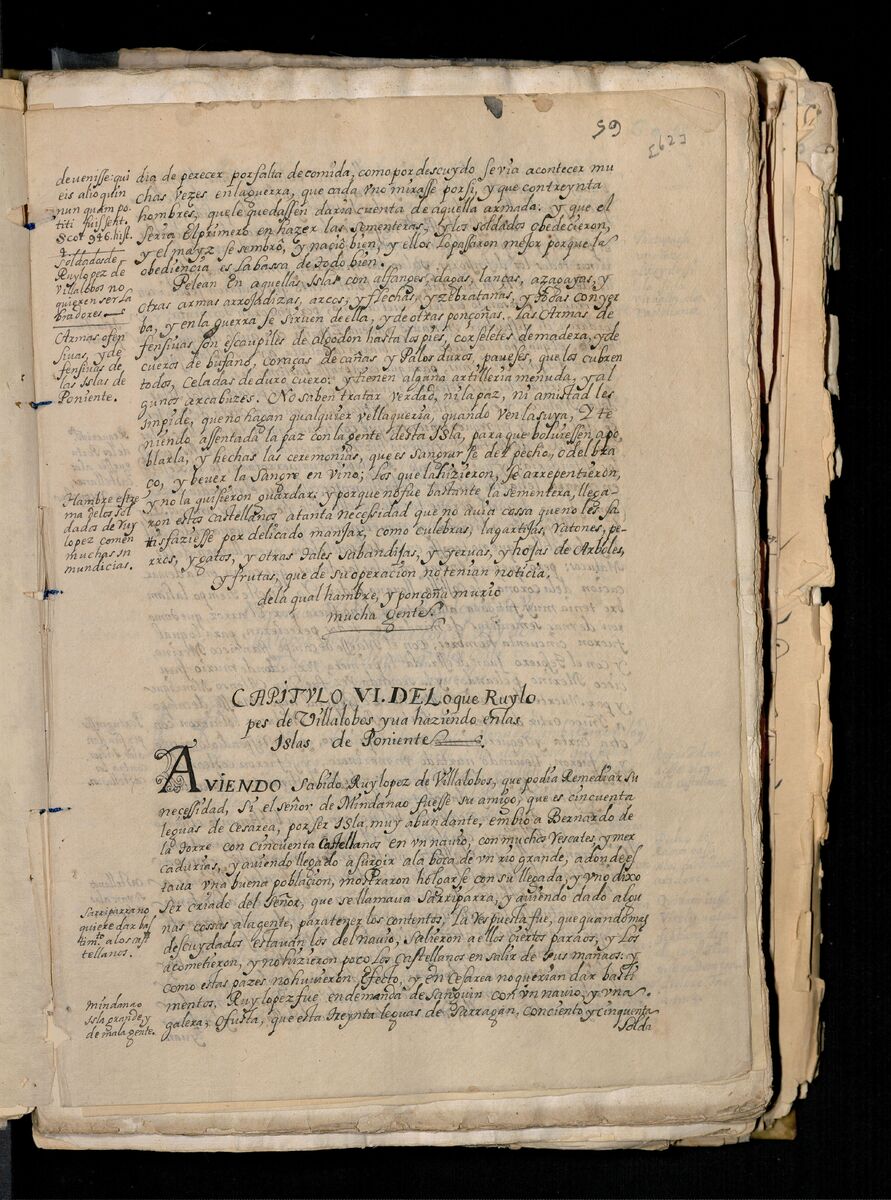 59
[62]
devenisse: qui
eis alioquin
nunquam po-
titi fuissent.
Scot 946. hist.
Soldados de
Ruylopez de
Villalobos no
quieren ser la
bradores.
Armas ofen
siuas, y de
fensiuas de
las Islas de
Poniente.
Hambre estre
ma de los sol
dados de Ruy
lopez comen
muchas in
mundicias.
dia de perecer por falta de comida, como por descuydo se via acontecer mu
chas vezes en la guerra, que cada vno mirasse por si, y que con treynta
hombres, que le quedassen daria cuenta de aquella armada: y que el
seria el primero en hazer las sementeras, y los soldados obedecieron,
y el mayz se sembró, y nació bien, y ellos lo passaron mejor porque la
obediencia es la bassa de todo bien.
Pelean en aquellas Islas con alfanges, dagas, lanças, azagayas, y
otras armas arrojadizas, arcos, y flechas, y zebratanas, y todas con yer
ba, y en la guerra se siruen de ella, y de otras ponçoñas. Las Armas de
fensiuas son escaupiles de algodon hasta los pies, corseletes de madera, y de
cueros de bufano, coraças de cañas, y Palos duros, paueses, que los cubren
todos, Celadas de duro cuero: y tienen alguna artilleria menuda, y al
gunos arcabuzes. No saben tratar verdad, ni la paz, ni amistad les
impide, que no hagan qualquier vellaqueria, quando ven la suya, Y te
niendo assentada la paz con la gente desta Isla, para que boluiessen a po
blarla, y hechas las ceremonias, que es sangrarse del pecho, o del bra
ço, y beuer la sangre en vino; los que la hizieron, se arrepentieron,
y no la quisieron guardar: y porque no fue bastante la sementera, llega
ron estos castellanos a tanta necessidad que no auia cossa que no les sa
tisfaziesse por delicado manjar, como culebras, lagartijas, Ratones, pe-
rros, y gatos, y otras tales sabandijas, y yeruas, y hojas de Arboles,
y frutas, que de su operacion no tenian noticia.
de la qual hambre, y ponçoña murio
mucha gente.
CAPITVLO VI. DEL o que Ruylo
pes de Villalobos yua haziendo en las
Islas de Poniente.
AVIENDO Sabido Ruy lopez de Villalobos, que podia Remediar su
necessidad, si el señor de Mindanao fuesse su amigo, que es cincuenta
leguas de Cesarea, por ser Isla muy abundante, embio a Bernardo de
la torre con cincuenta Castellanos en vn nauio, con muchos Rescates, y mer
cadurias, y auiendo llegado a surgir a la boca de vn rio grande, a donde es
taua vna buena poblacion, mostraron holgarse con su llegada, y vno dixo
ser criado del señor, que se llamaua Sarriparra, y auiendo dado algu
nas cossas a la gente, para tener los contentos, la Respuesta fue, que quando mas
descuydados estauan los del nauio, salieron a ellos ciertos paraos, y los
acometieron, y no hizieron poco los Castellanos en salir de sus manos: y
como estas pazes no huuieron efecto, y en Cesarea no querian dar basti
mentos, Ruy lopez fue en demanda de Sanguin con vn nauio, y vna
galera, o fusta, que esta treynta leguas de Sarragan, con ciento y cinquenta
Solda
Sarriparra no
quiere dar bas
timto a los cas
tellanos.
Mindanao
Isla grande, y
de mala gente.